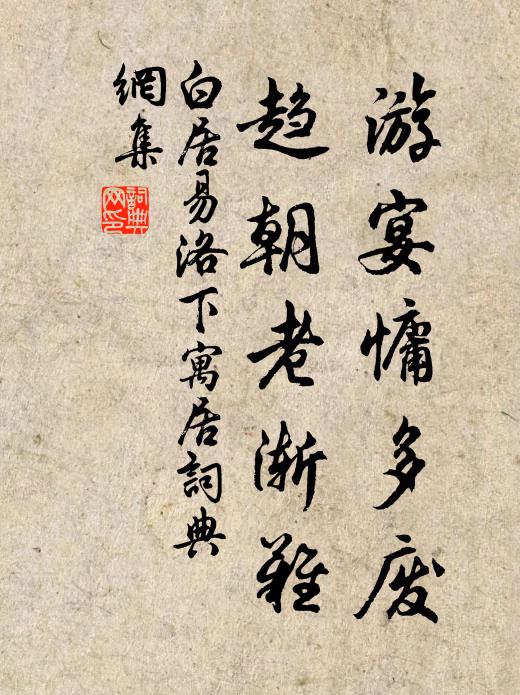 游宴慵多废
趋朝老渐难
白居易洛下寓居詞典
網集
詞典网印